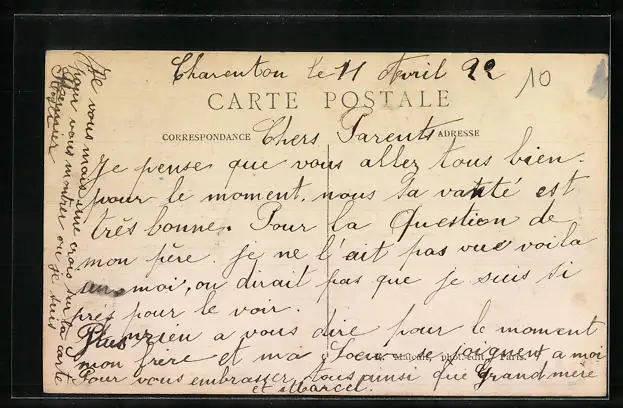 Charenton le 11 Avril 22
10
CARTE POSTALE
CORRESPONDANCE Chers Parents ADRESSE
Je pense que vous allez tous bien.
pour le moment. nous la vanté est
très bonne. Pour la Question de
mon père. je ne l'ait pas vue voila
un moi, ou dirait pas que je suis si
près pour le voir.
Plus rien a vous dire pour le moment
mon frère et ma Soeur se joignent a moi
Pour vous embrasser tous ainsi que Grand mère
et Marcel.
Je vous mais une crois sur la carte
pour vous montrer ou je suis